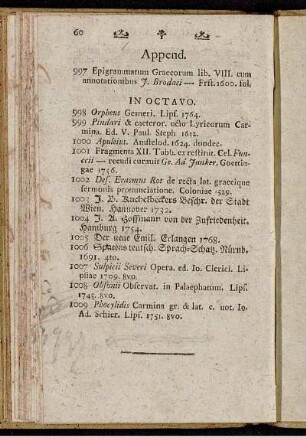 60
Append.
997 Epigrammatum Graecorum lib. VIII. cum
annotationibus J. Brodaei — Frft. 1600. fol.
IN OCTAVO.
998 Orpheus Gesneri. Lips. 1764.
999 Pindari & caeteror. octo Lyricorum Car-
mina. Ed. V. Paul. Steph. 1612.
1000 Apuleius. Amstelod. 1624. duodec.
1001 Fragmenta XII. Tabb. ex restitut. Cel. Fun-
ccii — recudi curavit Gr. Ad. Junker. Goettin-
gae 1756.
1002 Des. Erasmus Rot de recta lat. graecique
sermonis pronunciatione. Coloniae 529.
1003 J. B. Kuchelbeckers Beschr. der Stadt
Wien. Hannover 1732.
1004 J. A. Hoffmann von der Zufriedenheit.
Hamburg 1754.
1005 Der neue Emil. Erlangen 1768.
1006 teutsch. Sprach-Schatz. Nürnb.
1691. 4to.
1007 Sulpicii Severi Opera. ed. Io. Clerici. Li-
psiae 1709. 8vo.
1008 Observat. in Palaephatum. Lips.
1745. 8vo.
1009 Phocylidis Carmina gr. & lat. c. not. Io.
Ad. Schier. Lips. 1751. 8vo.